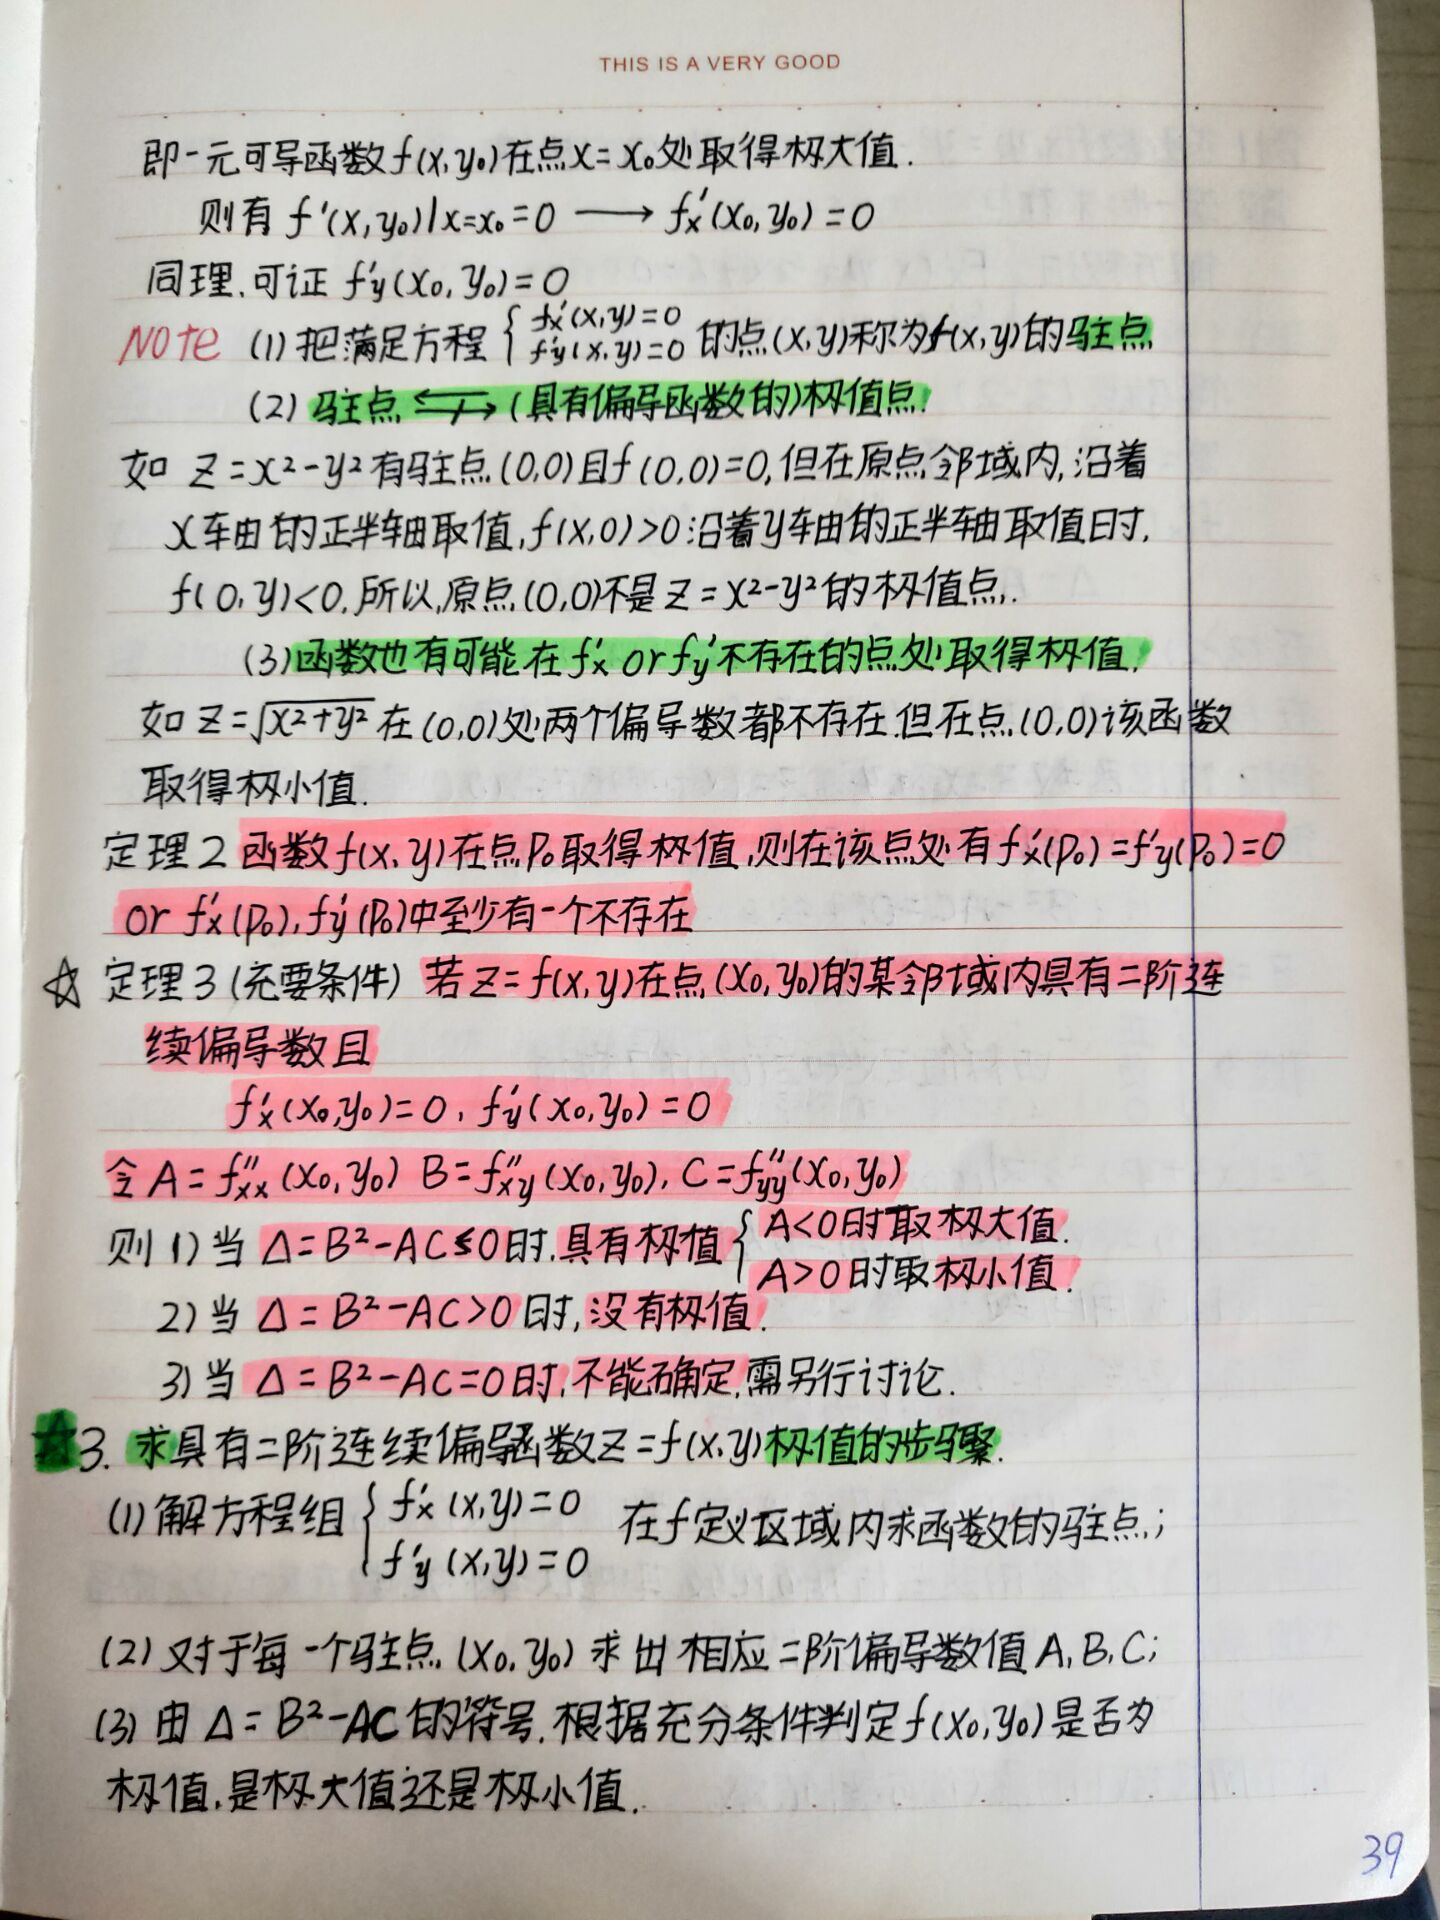 THIS IS A VERY GOOD
即一元可导函数f(x,y₀)在点x=x₀处取得极大值.
则有 f'(x,y₀)|x=x₀=0 ⟶ fx'(x₀,y₀)=0
同理.可证 f'y(x₀,y₀)=0
Note (1)把满足方程 { fx'(x,y)=0 f'y(x,y)=0 的点(x,y)称为f(x,y)的驻点
(2) 驻点 ⇆̸ (具有偏导函数的)极值点.
如 Z=x²-y²有驻点(0,0)且f(0,0)=0,但在原点邻域内,沿着
x车由的正半轴取值,f(x,0)>0沿着y车由的正半轴取值时,
f(0,y)<0.所以,原点(0,0)不是Z=x²-y²的极值点.
(3)函数也有可能在f'x or fy'不存在的点处取得极值.
如Z=√x²+y² 在(0,0)处两个偏导数都不存在.但在点(0,0)该函数
取得极小值.
定理2 函数f(x,y)在点P₀取得极值,则在该点处有f'x(P₀)=f'y(P₀)=0
or f'x(P₀),f'y(P₀)中至少有一个不存在
☆ 定理3(充要条件) 若Z=f(x,y)在点(x₀,y₀)的某邻域内具有二阶连
续偏导数且
f'x(x₀,y₀)=0,f'y(x₀,y₀)=0
令A=f''xx(x₀,y₀) B=f''xy(x₀,y₀),C=f''yy(x₀,y₀)
则1)当 Δ=B²-AC≤0时,具有极值 { A<0时取极大值. A>0时取极小值.
2)当 Δ=B²-AC>0时,没有极值.
3)当 Δ=B²-AC=0时,不能确定,需另行讨论.
☆3. 求具有二阶连续偏导函数Z=f(x,y)极值的步骤.
(1)解方程组 { f'x(x,y)=0 f'y(x,y)=0 在f定义区域内求函数的驻点;
(2)对于每一个驻点(x₀,y₀)求出相应二阶偏导数值A,B,C;
(3)由Δ=B²-AC的符号.根据充分条件判定f(x₀,y₀)是否为
极值.是极大值还是极小值.
39